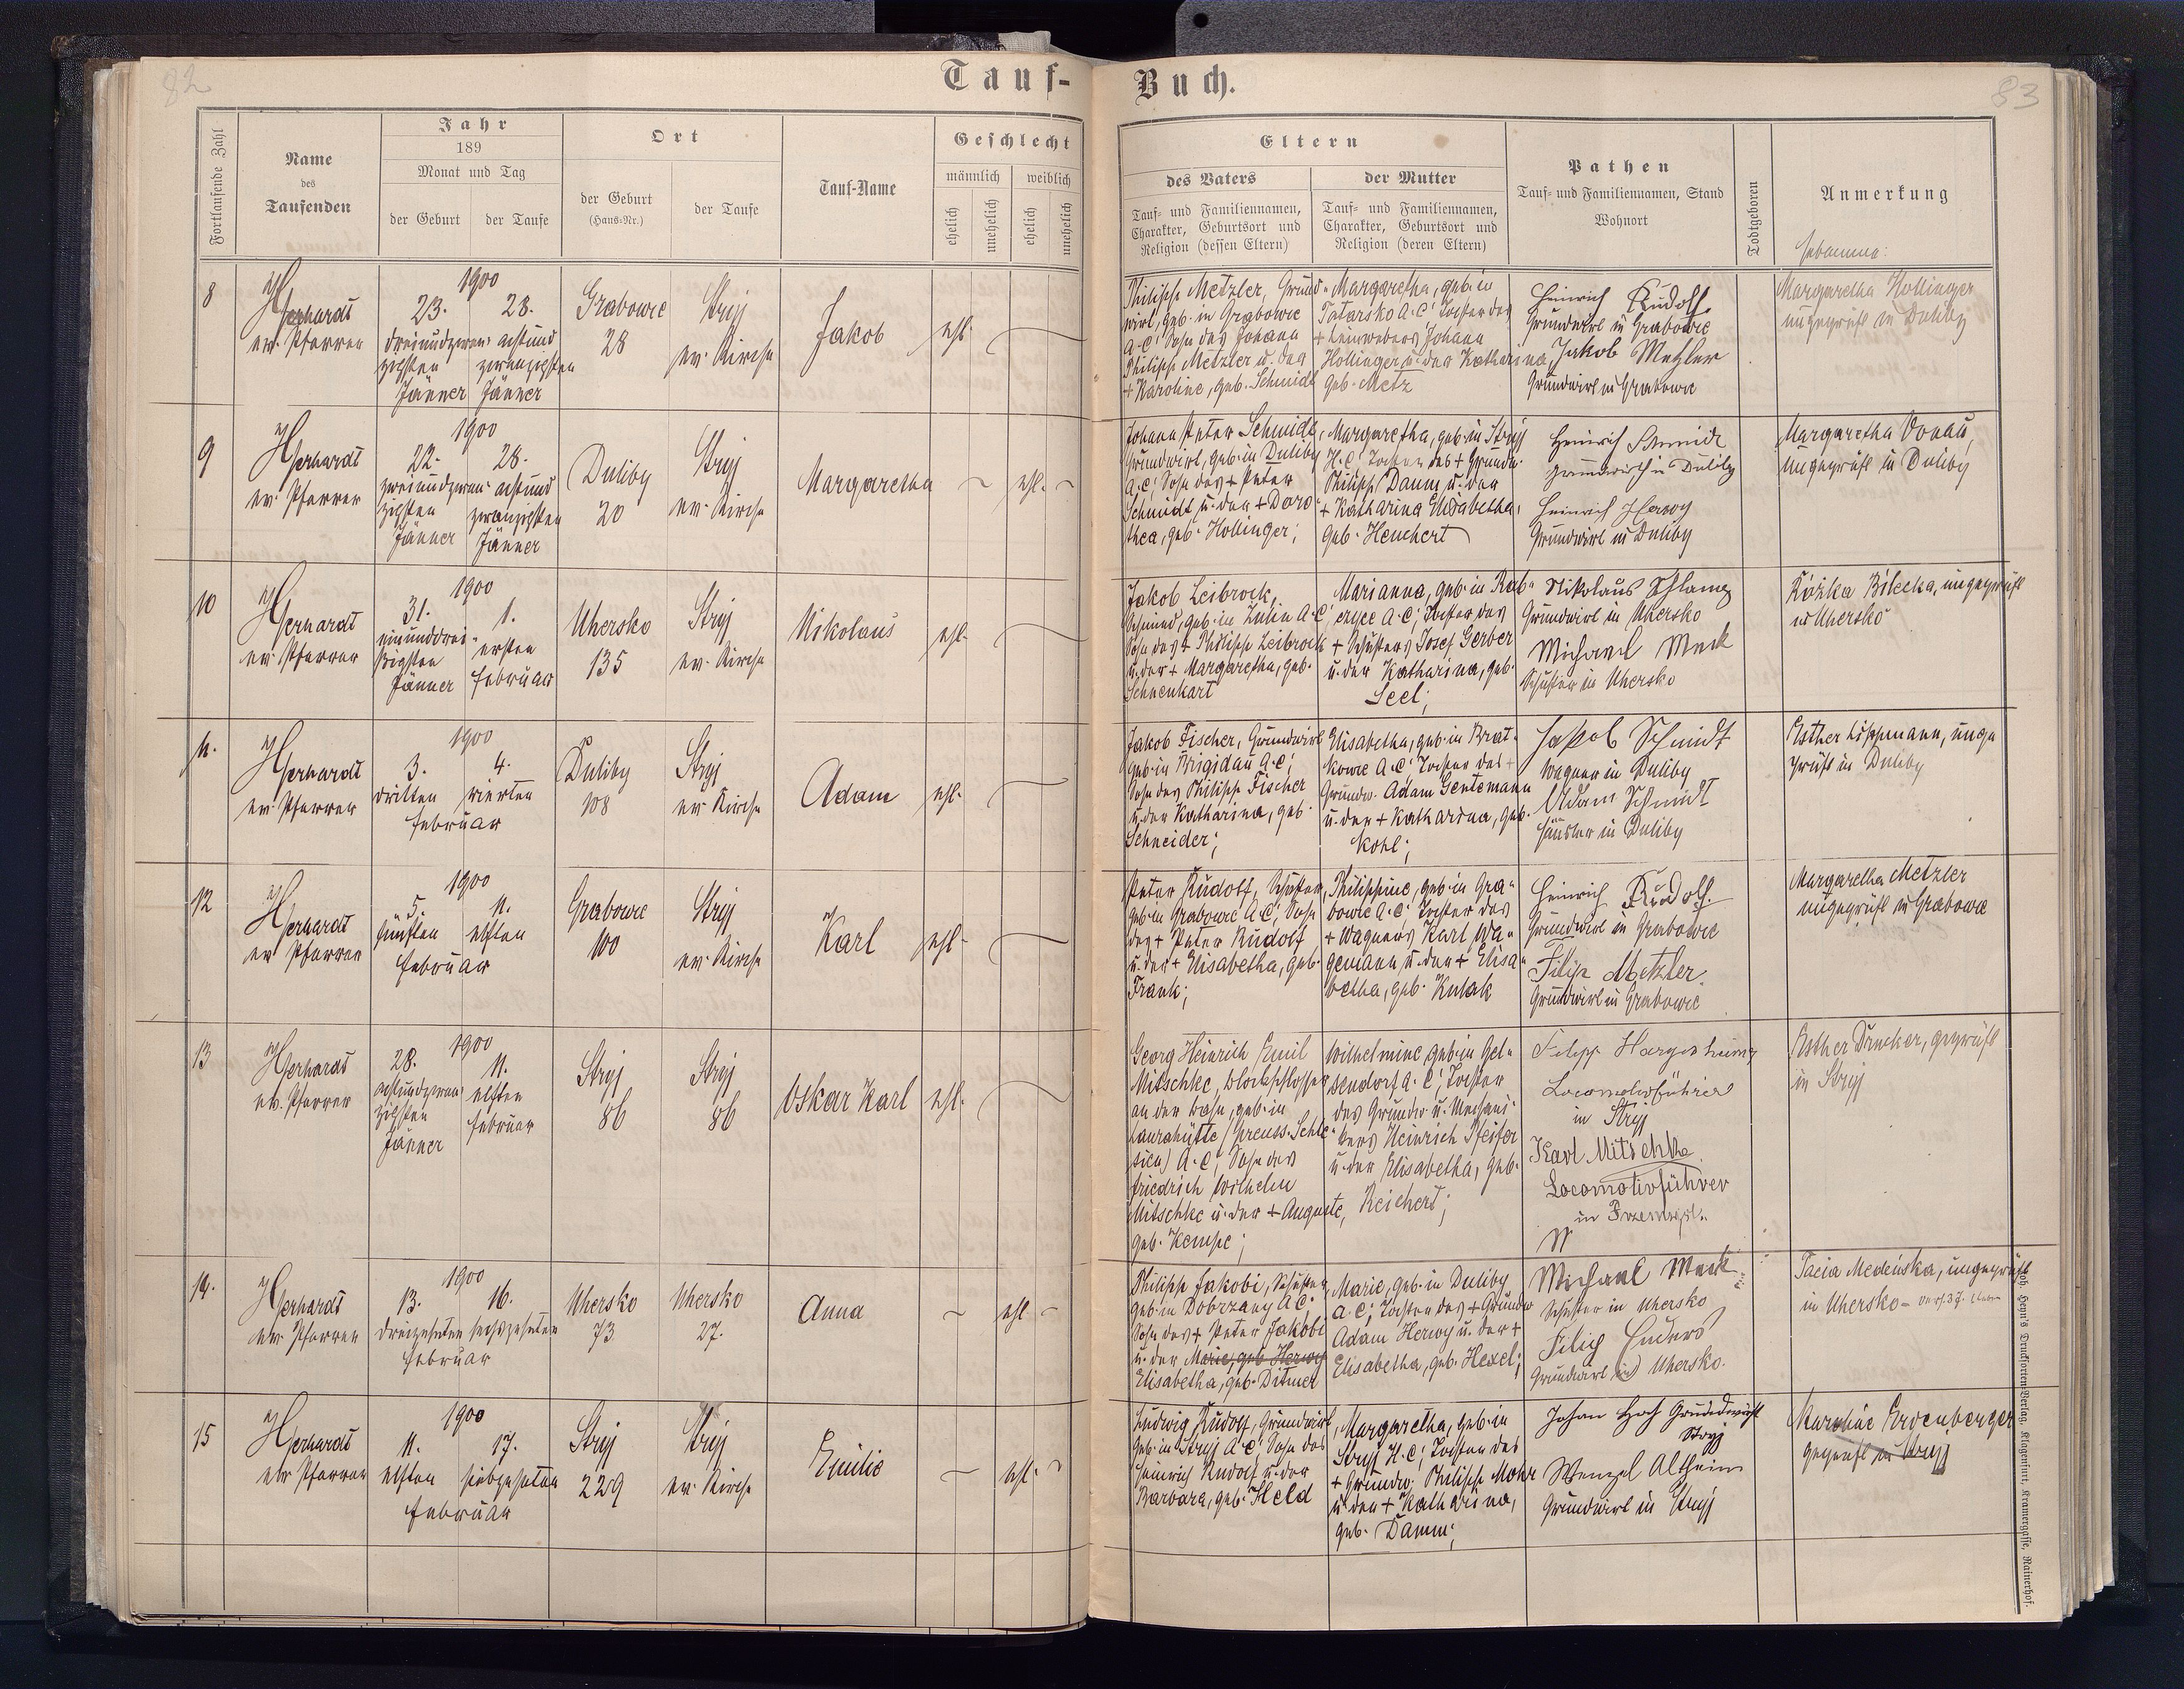 82
Tauf-
Fortlaufende Zahl
Name
des
Taufenden
Jahr
189
Monat und Tag
der Geburt
der Taufe
Ort
der Geburt
(Haus-Nr.)
der Taufe
Tauf-Name
Geschlecht
männlich
weiblich
ehelich
unehelich
ehelich
unehelich
8
Gerhardt
ev. Pfarrer
1900
23.
dreiundzwan-
zigsten
Jänner
28.
achtund
zwanzigsten
Jänner
Grabowce
28
Stryj
ev. Kirche
Jakob
ehl.
9
Gerhardt
ev. Pfarrer
1900
22.
zweiundzwan-
zigsten
Jänner
28.
achtund
zwanzigsten
Jänner
Duliby
20
Stryj
ev. Kirche
Margaretha
ehl.
10
Gerhardt
ev. Pfarrer
1900
31.
einunddrei-
ßigsten
Jänner
1.
ersten
Februar
Uhersko
135
Stryj
ev. Kirche
Nikolaus
ehl.
11.
Gerhardt
ev. Pfarrer
1900
3.
dritten
4.
vierten
Februar
Duliby
108
Stryj
ev. Kirche
Adam
ehl.
12
Gerhardt
ev. Pfarrer
1900
5.
fünften
11.
elften
Februar
Grabowce
100
Stryj
ev. Kirche
Karl
ehl.
13
Gerhardt
ev. Pfarrer
1900
28.
achtundzwan-
zigsten
Jänner
11.
elften
Februar
Stryj
86
Stryj
86
Oskar Karl
ehl.
14.
Gerhardt
ev. Pfarrer
1900
13.
dreizehnten
16.
sechszehnten
Februar
Uhersko
73
Uhersko
27.
Anna
ehl.
15
Gerhardt
ev. Pfarrer
1900
11.
elften
17.
siebzehnten
Februar
Stryj
229
Stryj
ev. Kirche
Emilie
ehl.
Buch.
83
Eltern
des Vaters
Tauf- und Familiennamen,
Charakter, Geburtsort und
Religion (dessen Eltern)
der Mutter
Tauf- und Familiennamen,
Charakter, Geburtsort und
Religion (deren Eltern)
Pathen
Tauf- und Familiennamen, Stand
Wohnort
Todtgeboren
Anmerkung
Hebamme:
Philipp Metzler, Grund-
wirt, geb. in Grabowce
A.C; Sohn des Johann
Philipp Metzler u. der
+ Karoline, geb. Schmidt
Margaretha, geb. in
Tatarsko A.C; Tochter des
+ Leinwebers Johann
Hollinger u. der Katharina,
geb. Metz
Heinrich Rudolf
Grundwirt in Grabowce
Jakob Metzler
Grundwirt in Grabowce
Margaretha Hollinger
ungeprüft in Duliby
Johann Peter Schmidt,
Grundwirt, geb. in Duliby
A.C; Sohn des + Peter
Schmidt u. der + Doro-
thea, geb. Hollinger;
Margaretha, geb. in Stryj
H.C; Tochter des + Grundw.
Philipp Damm u. der
+ Katharina Elisabetha,
geb. Heuchert
Heinrich Schmidt
Grundwirth in Duliby
Heinrich Herwy
Grundwirt in Duliby
Margaretha Donau,
ungeprüft in Duliby
Jakob Leibrock,
Schmied, geb. in Julin A.C;
Sohn des + Philipp Leibrock
u. der + Margaretha, geb.
Schnenkart
Marianna, geb. in Rab-
czyce A.C; Tochter des
+ Schusters Josef Gerber
u. der Katharina, geb.
Seel;
Nikolaus Schlamp
Grundwirt in Uhersko
Michael Meck
Schuster in Uhersko
Rózka Bilecka, ungeprüft
in Uhersko
Jakob Fischer, Grundwirt
geb. in Brigidau A.C;
Sohn des Philipp Fischer
u. der Katharina, geb.
Schneider;
Elisabetha, geb. in Brat-
kowce A.C; Tochter des +
Grundw. Adam Gentemann
u. der + Katharina, geb.
Kohl;
Jakob Schmidt
Wagner in Duliby
Adam Schmidt
Häusler in Duliby
Esther Lippmann, unge
prüft in Duliby
Peter Rudolf, Schuster,
geb. in Grabowce A.C; Sohn
des + Peter Rudolf
u. der + Elisabetha, geb.
Frank;
Philippine, geb. in Gra-
bowce A.C; Tochter des
+ Wagners Karl Wa-
gemann u. der + Elisa-
betha, geb. Kulak
Heinrich Rudolf.
Grundwirt in Grabowce
Filip Metzler.
Grundwirt in Grabowce
Margaretha Metzler
ungeprüft in Grabowce
Georg Heinrich Emil
Mitschke,
an der Bahn, geb. in
Laurahütte (Preuss. Schle-
sien) A.C; Sohn des
Friedrich Wilhelm
Mitschke u. der + Auguste,
geb. Kempe;
Wilhelmine, geb. in Gel-
sendorf A.C; Tochter
des Grundw. u. Mechani-
kers Heinrich Pfeifer
u. der Elisabetha, geb.
Reichert;
Filipp Hargesheimer
Locomotivführer
in Stryj
Karl Mitschke
Locomotivführer
in Przemysl.
Esther Drucker, geprüft
in Stryj
Philipp Jakobi, Schuster,
geb. in Dobrzany A.C;
Sohn des + Peter Jakobi
u. der Marie, geb. Herwy
Elisabetha, geb. Ditmer
Marie, geb. in Duliby
A.C; Tochter des + Grundw
Adam Herwy u. der +
Elisabetha, geb. Hexel;
Michael Meck
Schuster in Uhersko
Filip Enders
Grundwirt in Uhersko.
Tacia Medeńska, ungeprüft
in Uhersko
Ludwig Rudolf, Grundwirt,
geb. in Stryj A.C; Sohn des
Heinrich Rudolf u. der
Barbara, geb. Held
Margaretha, geb. in
Stryj H.C; Tochter des
+ Grundw. Philipp Mohr
u. der + Katharina,
geb. Damm;
Johan Hoch Grundwirth
Stryj
Wenzel Altheim
Grundwirt in Stryj
Karoline Erdenberger
geprüft in Stryj
Joh. Heyn's Drucksorten-Verlag, Klagenfurt, Kramergasse, Rainerhof.